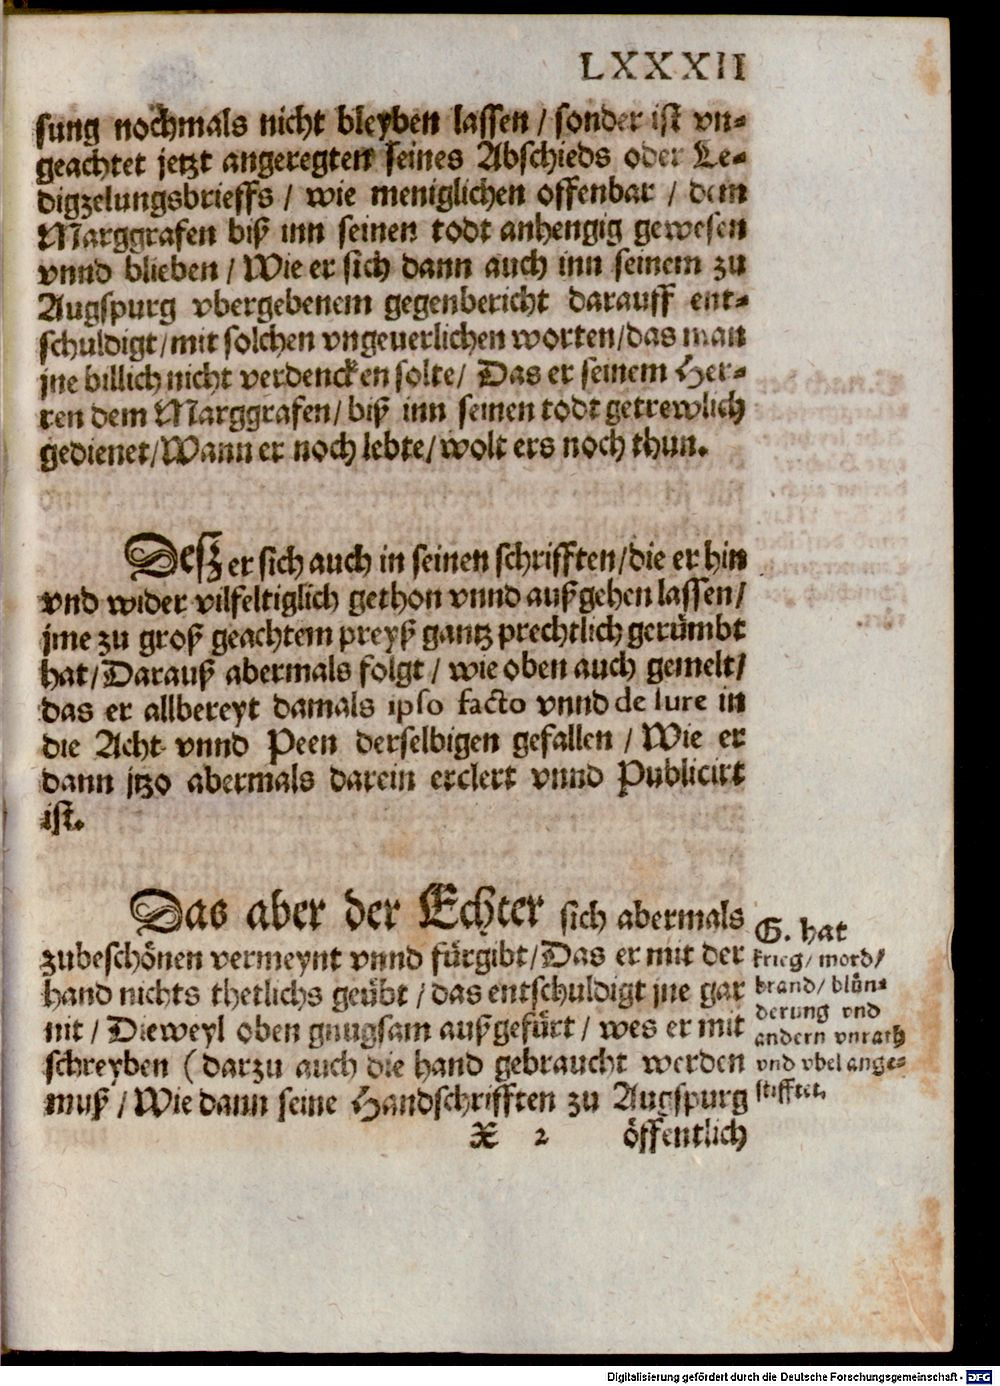 LXXXII
sung nochmals nicht bleyben lassen / sonder ist vn-
geachtet jetzt angeregten seines Abschieds oder Le-
digzelungsbrieffs / wie meniglichen offenbar / dem
Marggrafen biß inn seinen todt anhengig gewesen
vnnd blieben / Wie er sich dann auch inn seinem zu
Augspurg vbergebenem gegenbericht darauff ent-
schuldigt / mit solchen vngeuerlichen worten / das man
jne billich nicht verdencken solte / Das er seinem Her-
ren dem Marggrafen / biß inn seinen todt getrewlich
gedienet / Wann er noch lebte / wolt ers noch thun.
Desz er sich auch in seinen schrifften / die er hin
vnd wider vilfeltiglich gethon vnnd außgehen lassen /
jme zu groß geachtem preyß gantz prechtlich gerümbt
hat / Darauß abermals folgt / wie oben auch gemelt /
das er allbereyt damals ipso facto vnnd de Iure in
die Acht vnnd Peen derselbigen gefallen / Wie er
dann jtzo abermals darein erclert vnnd Publicirt
ist.
Das aber der Echter sich abermals
zubeschönen vermeynt vnnd fürgibt / Das er mit der
hand nichts thetlichs geübt / das entschuldigt jne gar
nit / Dieweyl oben gnugsam außgefürt / wes er mit
schreyben ( darzu auch die hand gebraucht werden
muß / Wie dann seine Handschrifften zu Augspurg
X 2 öffentlich
G. hat
krieg / mord /
brand / blün-
derung vnd
andern vnrath
vnd vbel ange-
stifftet.
Digitalisierung gefördert durch die Deutsche Forschungsgemeinschaft - DFG